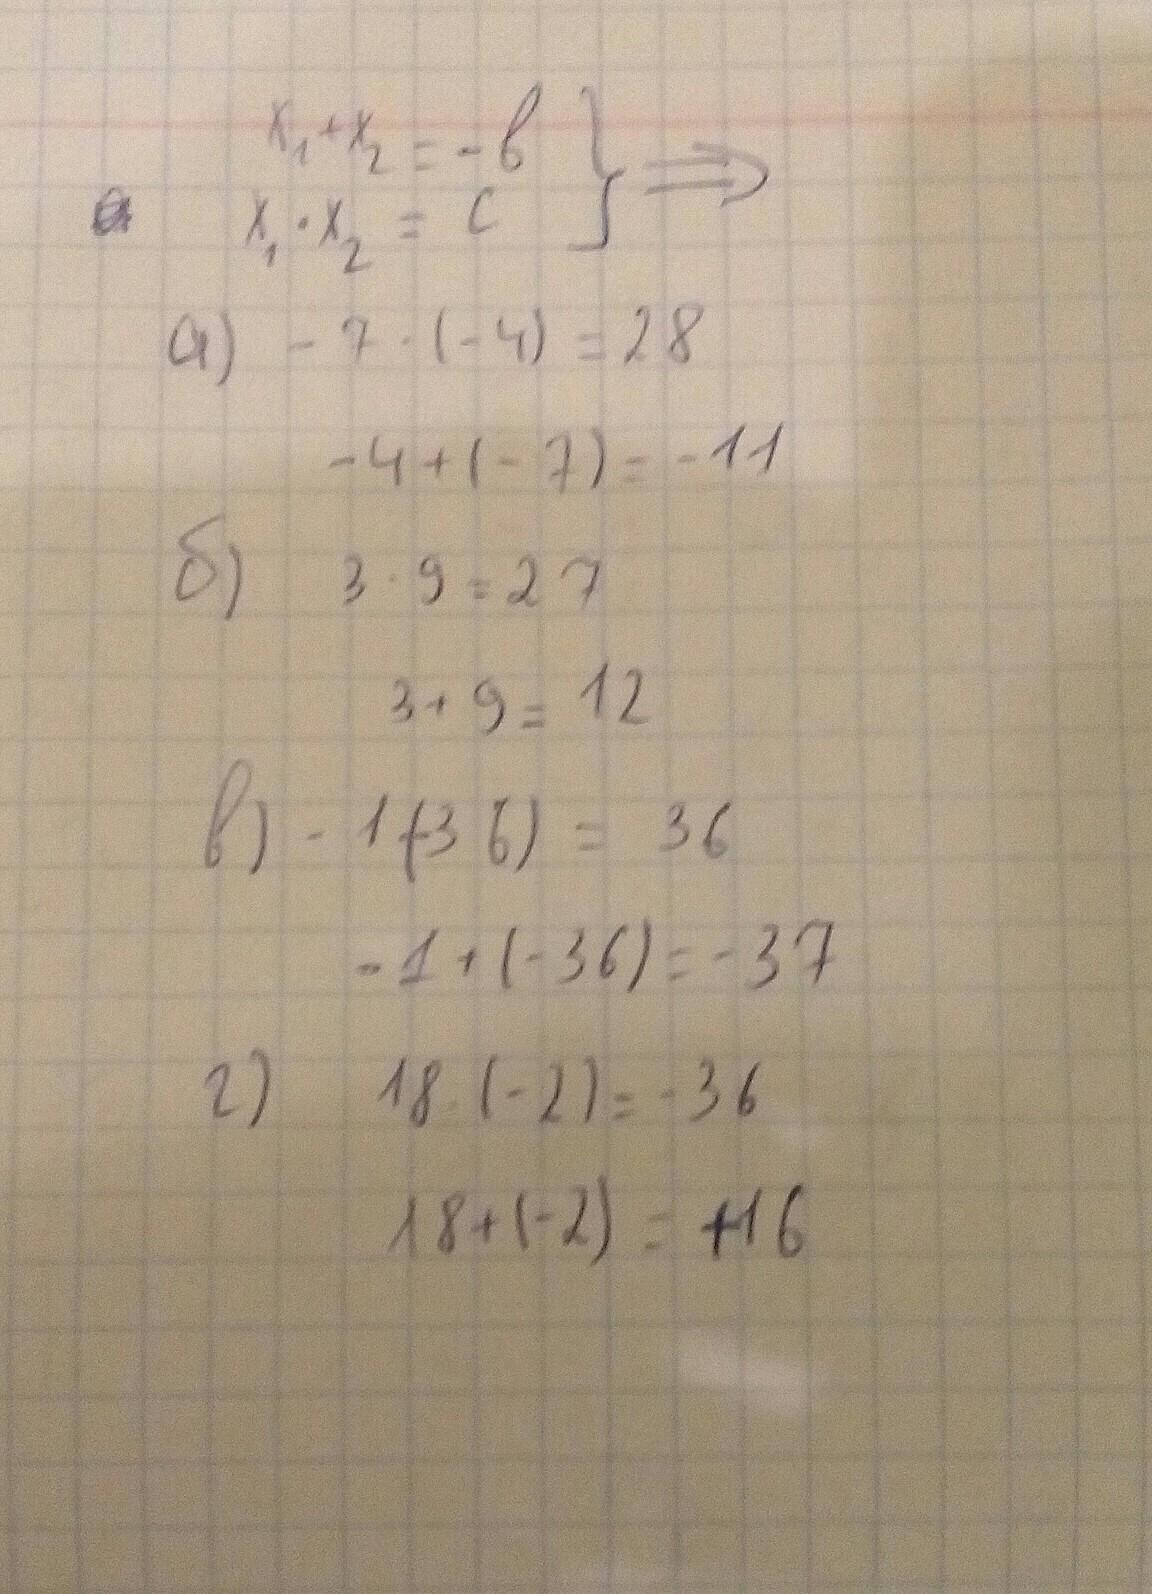 x₁+x₂ = -b } ⟹
x₁·x₂ = c
а) -7·(-4) = 28
-4+(-7) = -11
б) 3·9=27
3+9=12
в) -1(-36) = 36
-1+(-36)=-37
г) 18·(-2)=-36
18+(-2) = +16